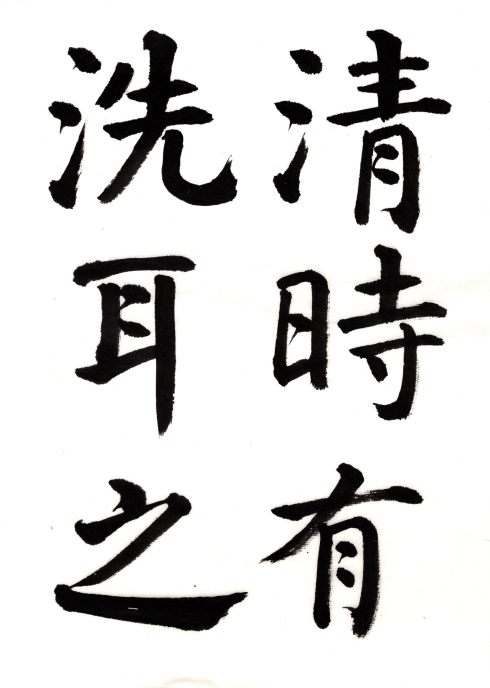 清時有
洗耳之